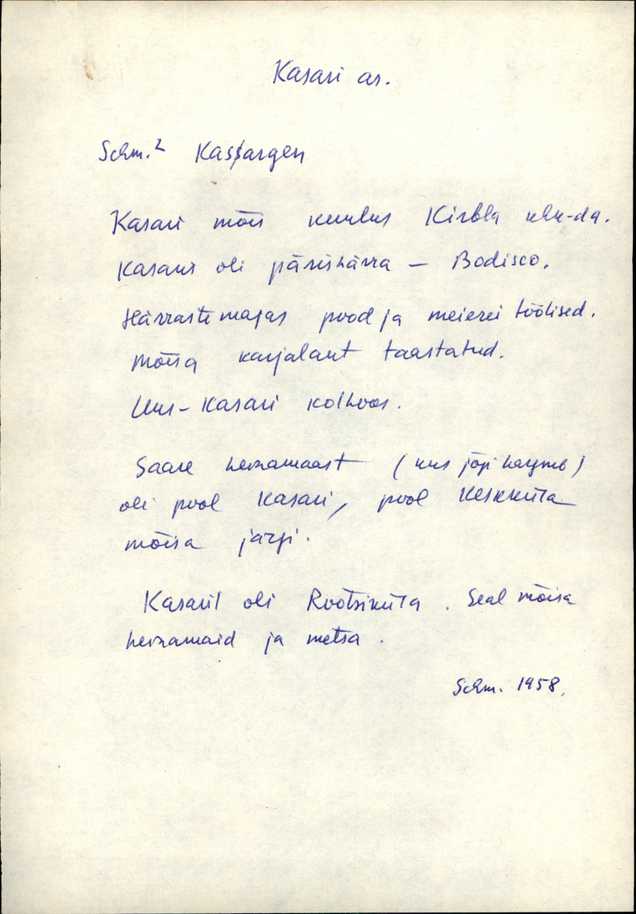 Kasari as.
Schm.² Kasſargen
Kasari mõis kuulus Kirbla khk-da.
Kasaris oli pärishärra – Bodisco.
Härrastemajas pood ja meierei töölised.
Mõisa karjalaut taastatud.
Uus-Kasari kolhoos.
Saare heinamaast (kus jõgi hargneb)
oli pool Kasari, pool Keskküla
mõisa järgi.
Kasaril oli Rootsiküla. Seal mõisa
heinamaid ja metsa.
Schm. 1958.